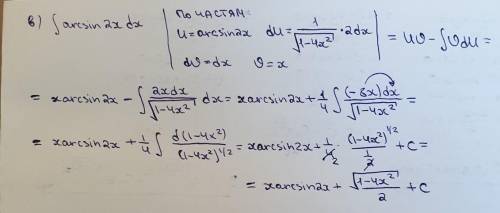 в) ∫ arcsin2x dx | по частям: u = arcsin2x du = 1/√(1-4x²) · 2dx dv = dx v = x | = uv - ∫vdu =
= xarcsin2x - ∫ 2xdx/√(1-4x²) dx = xarcsin2x + 1/4 ∫ (-8x)dx/√(1-4x²) =
= xarcsin2x + 1/4 ∫ d(1-4x²)/(1-4x²)^1/2 = xarcsin2x + 1/4₂ · (1-4x²)^1/2 / 1/2 + C =
= xarcsin2x + √(1-4x²)/2 + C